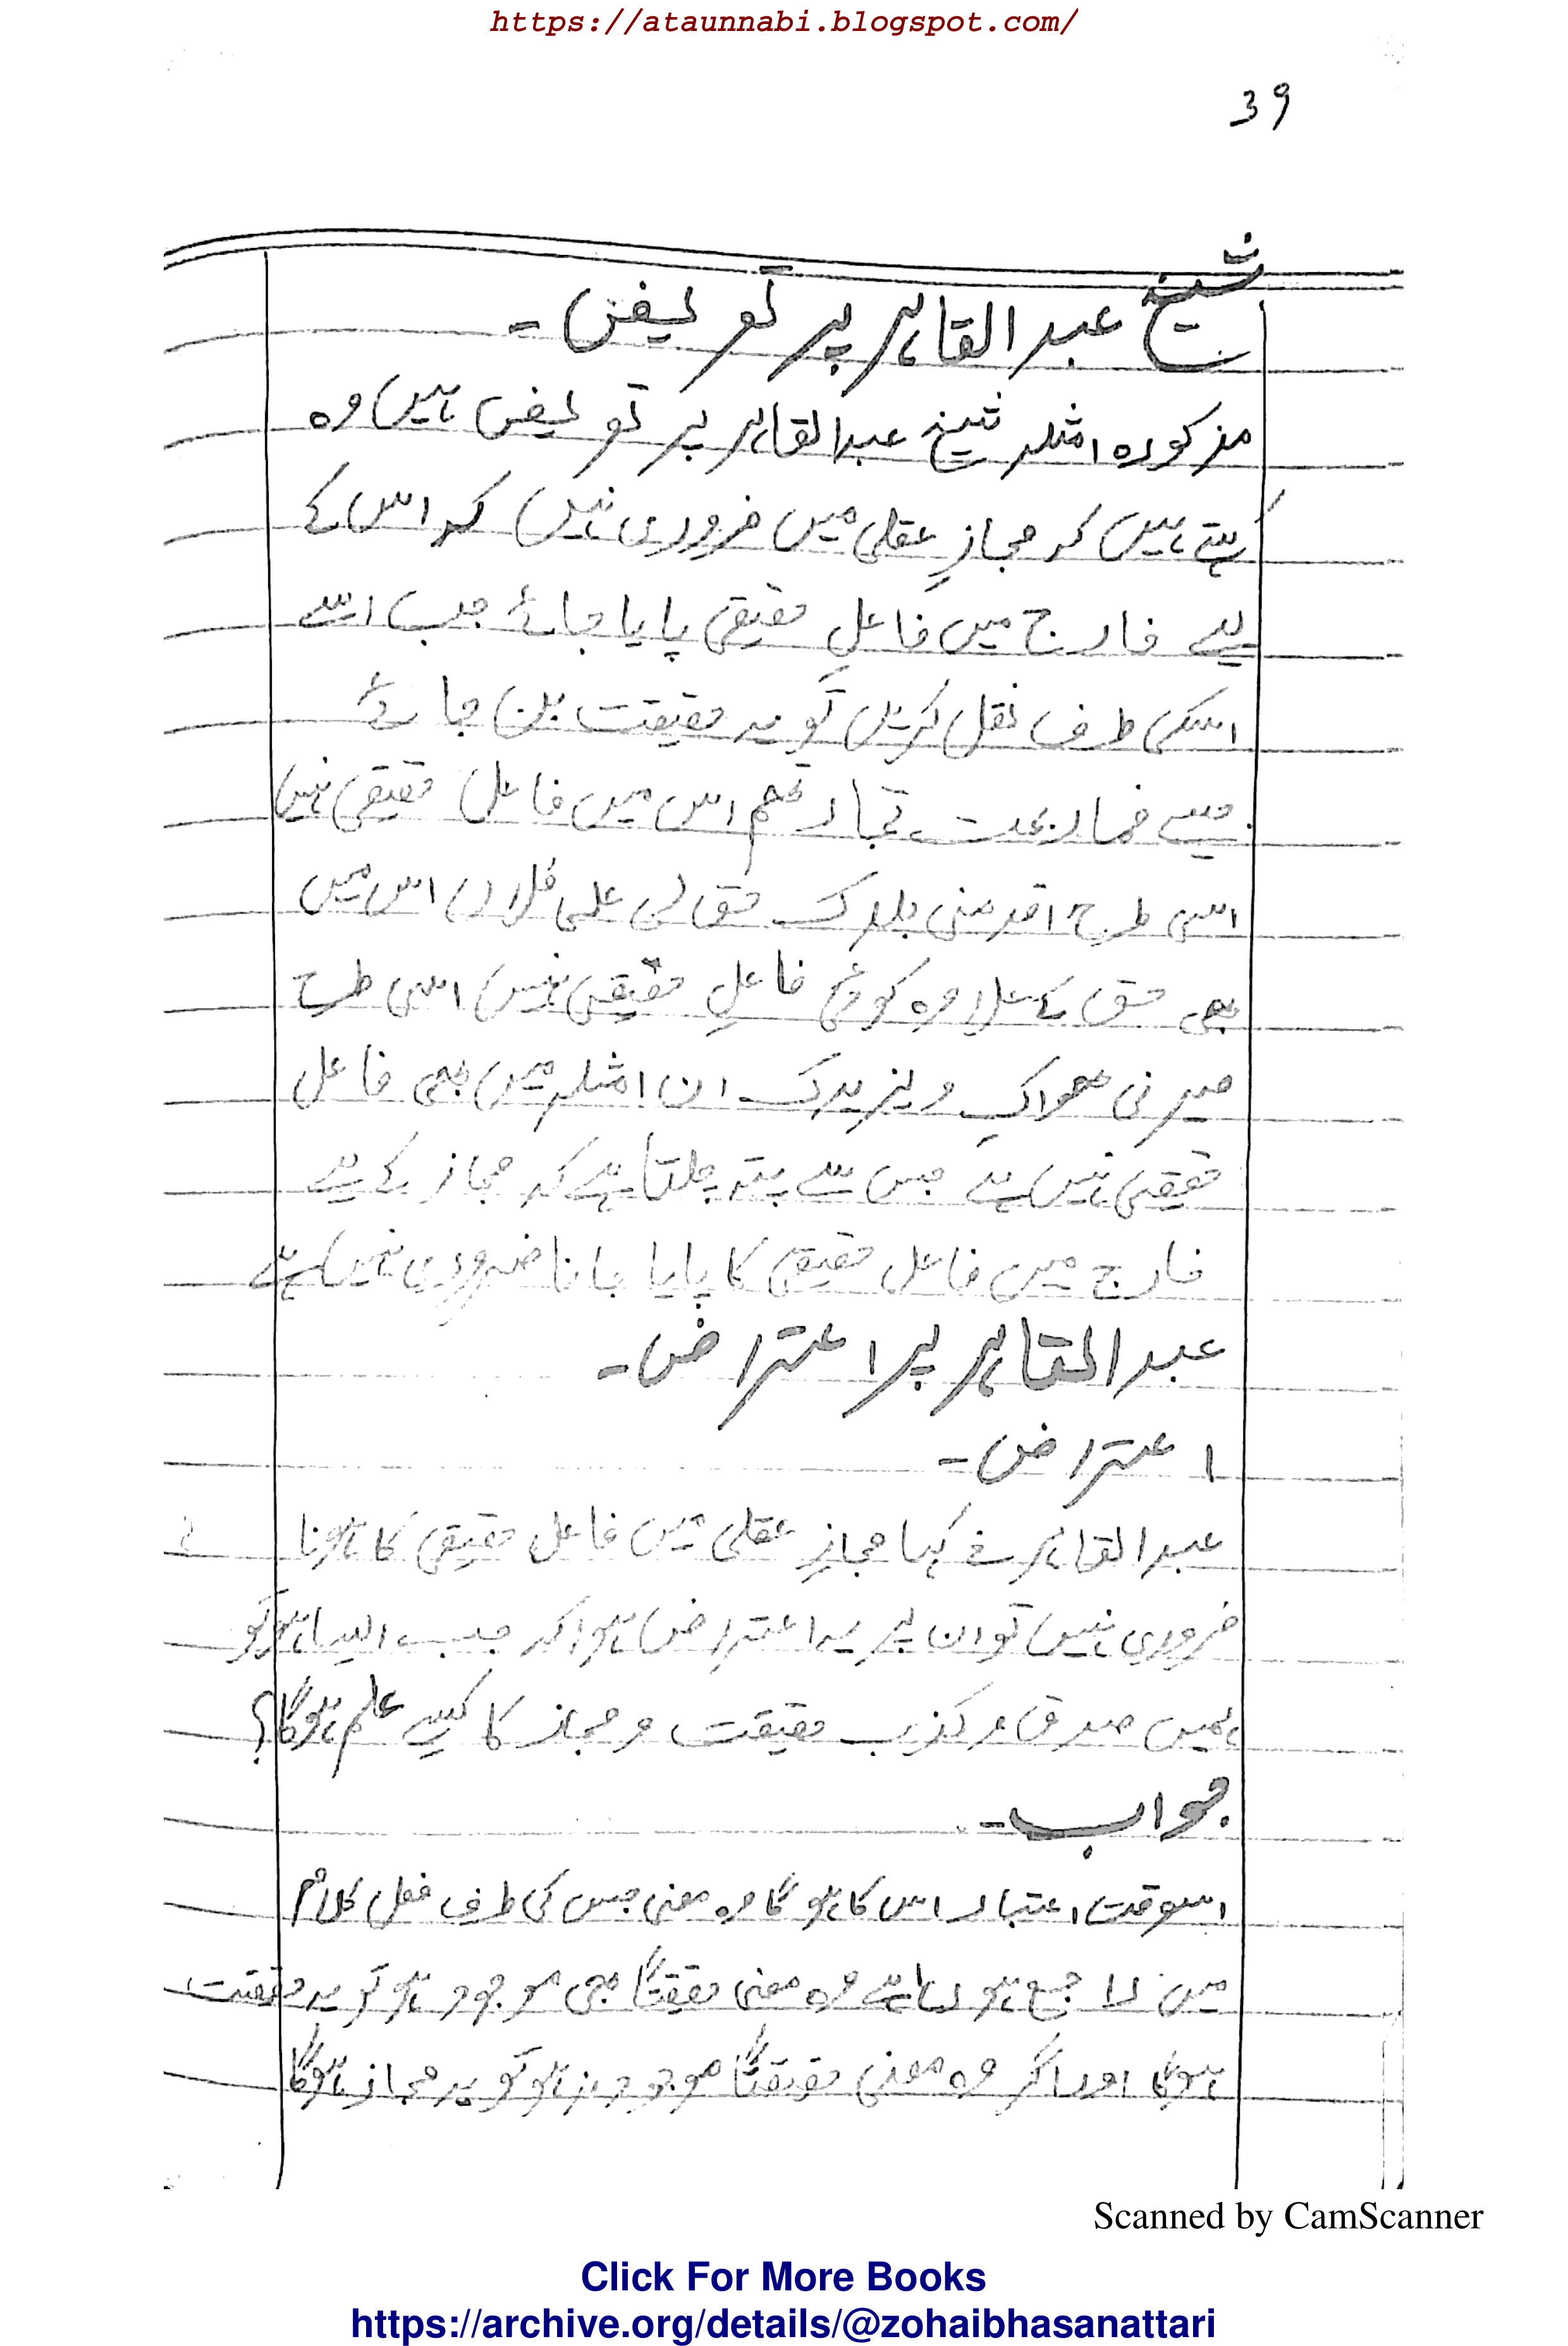 https://ataunnabi.blogspot.com/
39
شیخ عبد القاہر پر تعریض ۔
مذکورہ امثلہ شیخ عبدالقاہر پر تعریض ہیں وہ
کہتے ہیں کہ مجازِ عقلی میں ضروری نہیں کہ اس کے
لیے خارج میں فاعلِ حقیقی پایا جائے جب اسے
اسکی طرف نقل کریں تو یہ حقیقت بن جائے
جیسے فما ربحت تجارتھم اس میں فاعل حقیقی نہیں
اسی طرح اقدمنی بلدک حق لی علی فلان اس میں
بھی حق کے علاوہ کوئی فاعلِ حقیقی نہیں اسی طرح
صیرنی ھواکِ ویزیدک ان امثلہ میں بھی فاعل
حقیقی نہیں ہے جس سے پتہ چلتا ہے کہ مجاز کے لیے
خارج میں فاعل حقیقی کا پایا جانا ضروری نہیں ہے
عبد القاہر پر اعتراض ۔
اعتراض ۔
عبد القاہر نے کہا مجازِ عقلی میں فاعل حقیقی کا ہونا
ضروری نہیں تو ان پر یہ اعتراض ہوا کہ جب ایسا ہو تو
ہمیں صدق و کذب حقیقت و مجاز کا کیسے علم ہوگا؟
جواب ۔
اسوقت اعتبار اس کا ہو گا وہ معنی جس کی طرف فعل کلام
میں راجع ہو رہا ہے وہ معنی حقیقتاً بھی موجود ہو تو یہ حقیقت
ہوگا اور اگر وہ معنی حقیقتاً موجود نہ ہو تو یہ مجاز ہوگا
Scanned by CamScanner
Click For More Books
https://archive.org/details/@zohaibhasanattari